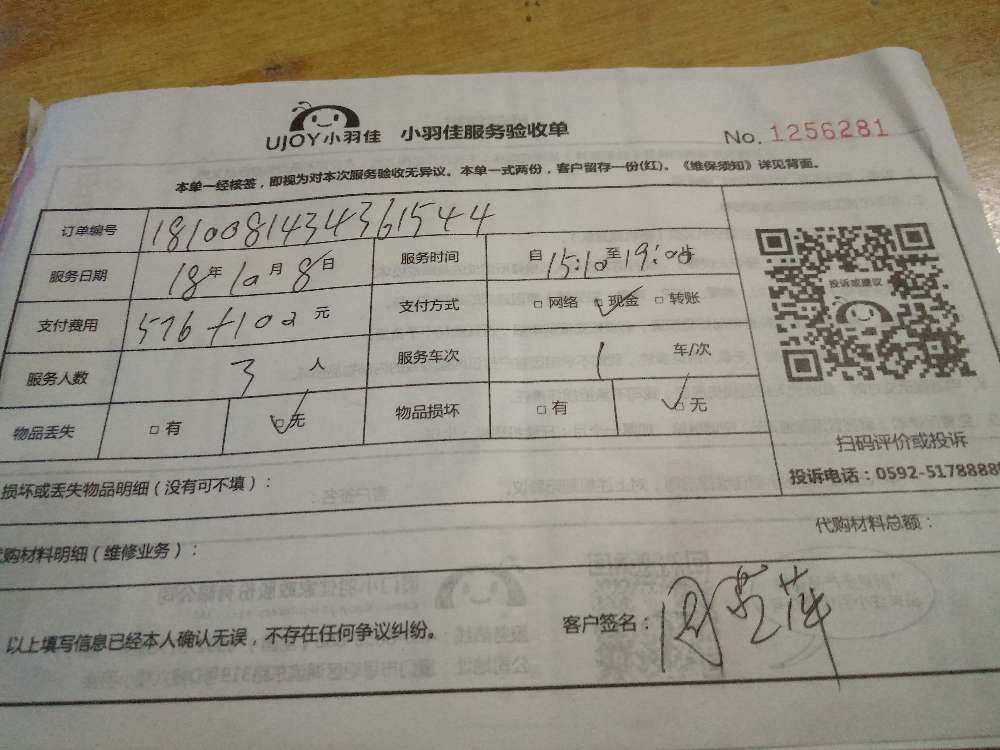 UJOY小羽佳 小羽佳服务验收单
No. 1256281
本单一经核签，即视为对本次服务验收无异议。本单一式两份，客户留存一份(红)。《维保须知》详见背面。
订单编号 1810081434361544
服务日期 18年10月8日 服务时间 自15:10至19:
支付费用 576+102元 支付方式 □网络 ☑现金 □转账
服务人数 3人 服务车次 1车/次
物品丢失 □有 ☑无 物品损坏 □有 ☑无
投诉或建议
扫码评价或投诉
投诉电话：0592-5178888
损坏或丢失物品明细（没有可不填）：
购材料明细（维修业务）： 代购材料总额：
以上填写信息已经本人确认无误，不存在任何争议纠纷。 客户签名：